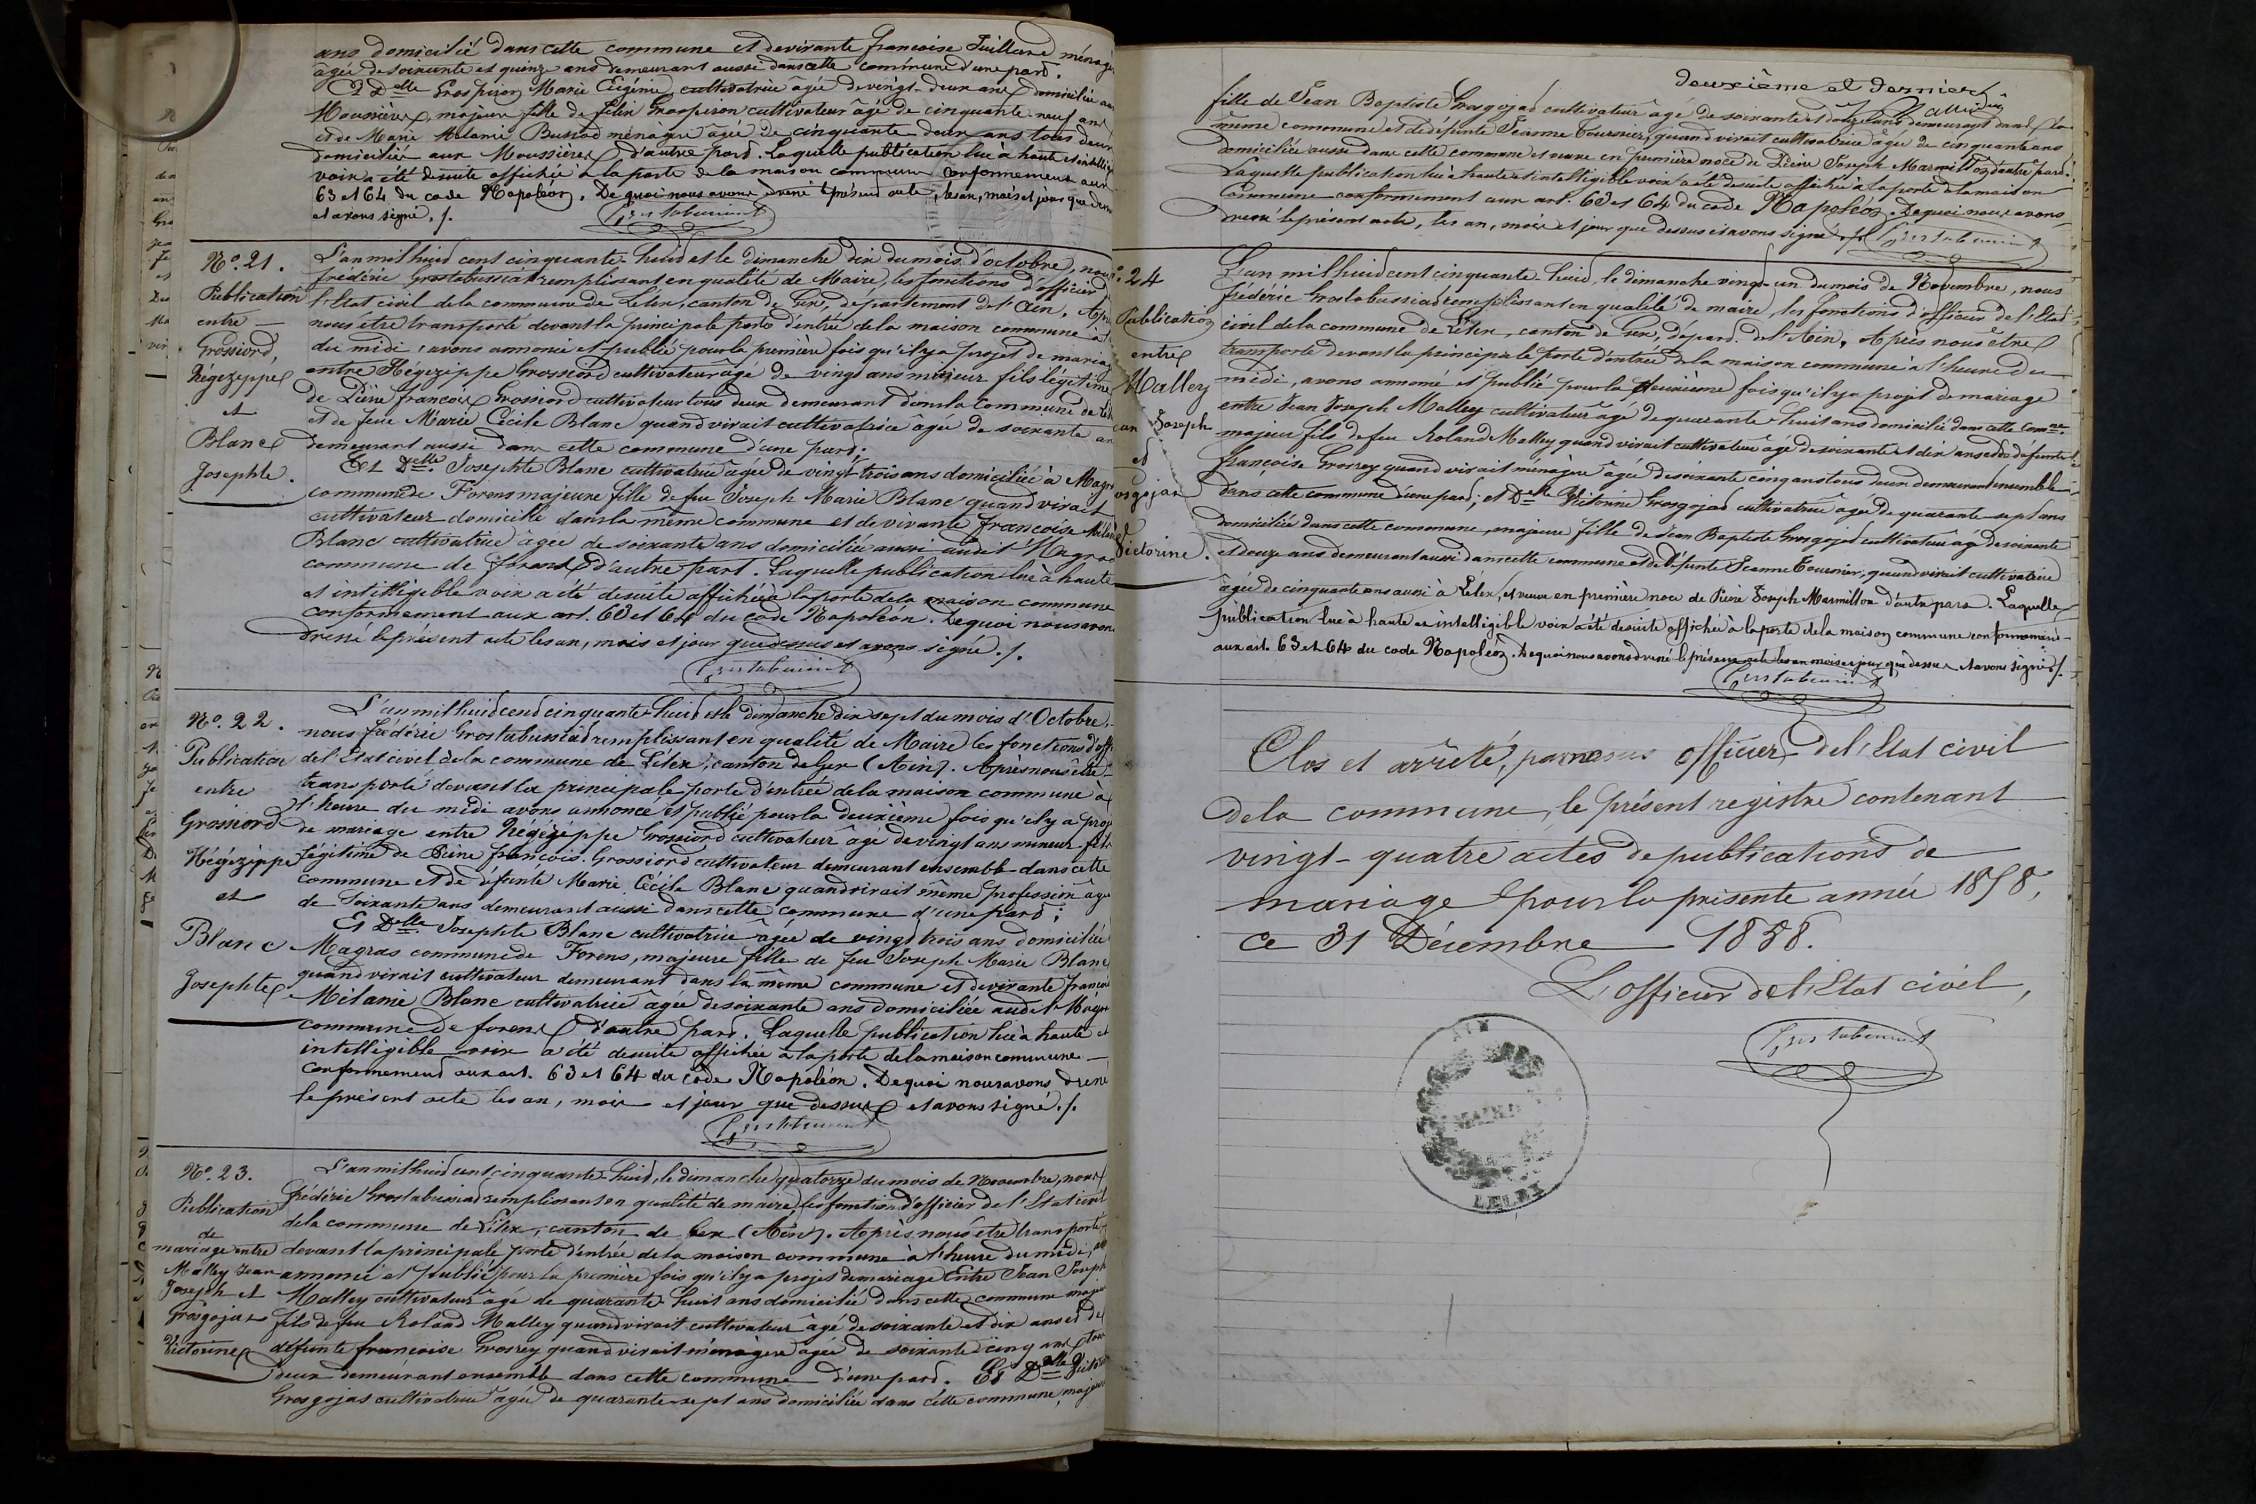 ans domicilié dans cette commune et de vivante francoise Juilland ménag
âgée de soixante et quinze ans demeurant aussi dans cette commune d'une part.
Et Delle Grospiron Marie Eugénie cultivatrice âgée de vingt-deux ans domiciliée aux
Moussières, majeure fille de félix Grospiron cultivateur âgé de cinquante neuf ans
et de Marie Mélanie Bussod ménagère âgée de cinquante deux ans tous deux
domiciliés aux Moussières d'autre part. Laquelle publication lue à haute et intellig
voix a été desuite affichée à la porte de la maison commune conformement aux
63 et 64 du code Napoléon. De quoi nous avons dressé le présent acte, les an, mois et jour que dessus
et avons signé ./.
No. 21.
Publication
entre
Grossiord,
Hégezippe
et
Blanc
Josephte.
L'an mil huit cent cinquante-huit et le dimanche dix du mois d'octobre, nous
frédéric Grostabussiat remplissant en qualité de Maire, les fonctions d'officier
l'Etat civil de la commune de Lélex, canton de Gex, département de l'Ain, Après
nous être transporté devant la principale porte d'entrée de la maison commune à l'
du midi, avons annoncé et publié pour la première fois qu'il y a projet de mariag
entre Hégezippe Grossiord cultivateur âgé de vingt ans mineur fils légitime
de Pierre francois Grossiord cultivateur tous deux demeurant dans la commune de Lél
et de feue Marie Cécile Blanc quand vivait cultivatrice âgée de soixante an
demeurant aussi dans cette commune d'une part;
Et Delle. Josephte Blanc cultivatrice âgée de vingt-trois ans domiciliée à Magr
commune de Forens majeure fille de feu Joseph Marie Blanc quand vivait
cultivateur domicilié dans la même commune et de vivante francoise Mélani
Blanc cultivatrice âgée de soixante ans domiciliée aussi audit Magra
commune de forens d'autre part. Laquelle publication lue à haute
et intelligible voix a été desuite affichée à la porte de la maison commune
conformement aux art. 63 et 64 du code Napoléon. De quoi nous avon
dressé le présent acte les an, mois et jour que dessus et avons signé ./.
No. 22.
Publication
entre
Grossiord
Hégézippe
et
Blanc
Josephte
L'an mil huit cent cinquante-huit et le dimanche dix sept du mois d'Octobre,
nous frédéric Grostabussiat remplissant en qualité de Maire les fonctions d'off
de l'Etat civil de la commune de Lélex, canton de Gex (Ain). Après nous être
transporté devant la principale porte d'entrée de la maison commune à
l'heure du midi avons annoncé et publié pour la deuxième fois qu'il y a proj
de mariage entre Hégézippe Grossiord cultivateur âgé de vingt ans mineur fils
légitime de Pierre francois Grossiord cultivateur demeurant ensemble dans cette
commune et de défunte Marie Cécile Blanc quand vivait même profession âg
de soixante ans demeurant aussi dans cette commune d'une part;
Et Delle. Josephte Blanc cultivatrice âgée de vingt trois ans domiciliée
Magras commune de Forens, majeure fille de feu Joseph Marie Blanc
quand vivait cultivateur demeurant dans la même commune et de vivante francoi
Mélanie Blanc cultivatrice âgée de soixante ans domiciliée audit Magr
commune de forens d'autre part. Laquelle publication lue à haute et
intelligible voix a été desuite affichée à la porte de la maison commune
conformement aux art. 63 et 64 du code Napoléon. De quoi nous avons dressé
le présent acte les an, mois et jour que dessus et avons signé ./.
No. 23.
Publication
de
mariage entre
Malley Jean
Joseph et
Grosgojat
Victorine
L'an mil huit cent cinquante-huit, le dimanche quatorze du mois de Novembre, nous
frédéric Grostabussiat remplissant en qualité de maire, les fonctions d'officier de l'Etat civil
de la commune de Lélex, canton de Gex (Ain). Après nous être transporté
devant la principale porte d'entrée de la maison commune à l'heure du midi, av
annoncé et publié pour la première fois qu'il y a projet de mariage Entre Jean Joseph
Malley cultivateur âgé de quarante-huit ans domicilié dans cette commune maje
fils de feu Roland Malley quand vivait cultivateur âgé de soixante et dix ans et de
défunte francoise Grosrey quand vivait ménagère âgée de soixante cinq ans tous
deux demeurant ensemble dans cette commune d'une part. Et Delle Victor
Grosgojat cultivatrice âgée de quarante-sept ans domiciliée dans cette commune, majeure
deuxième et dernier
fille de Jean Baptiste Grosgojat cultivateur âgé de soixante et douze ans demeurant dans la
même commune et de défunte Jeanne Tournier, quand vivait cultivatrice âgée de cinquante ans
domiciliée aussi dans cette commune et veuve en première noce de Pierre Joseph Marmillon d'autre part.
Laquelle publication lue à haute et intelligible voix a été desuite affichée à la porte de la maison
Commune conformement aux art. 63 et 64 du code Napoléon. De quoi nous avons
dressé le présent acte, les an, mois et jour que dessus et avons signé ./.
o. 24
Publication
entre
Malley
ean Joseph
et
osgojat
Victorine.
L'an mil huit cent cinquante-huit, le dimanche vingt-un du mois de Novembre, nous
frédéric Grostabussiat remplissant en qualité de maire, les fonctions d'officier de l'Etat
civil de la commune de Lélex, canton de Gex, départ. de l'Ain, Après nous être
transporté devant la principale porte d'entrée de la maison commune à l'heure du
midi, avons annoncé et publié pour la deuxième fois qu'il y a projet de mariage
entre Jean Joseph Malley cultivateur âgé de quarante-huit ans domicilié dans cette Comne.
majeur fils de feu Roland Malley quand vivait cultivateur âgé de soixante et dix ans et de défunte
françoise Grosrey quand vivait ménagère âgée de soixante cinq ans tous deux demeurant ensemble
dans cette commune d'une part; et Delle Victorine Grosgojat cultivatrice âgée de quarante-sept ans
domiciliée dans cette commune, majeure fille de Jean Baptiste Grosgojat cultivateur âgé de soixante
et douze ans demeurant aussi dans cette commune et de défunte Jeanne Tournier, quand vivait cultivatrice
âgée de cinquante ans aussi à Lélex, et veuve en première noce de Pierre Joseph Marmillon d'autre part. Laquelle
publication lue à haute et intelligible voix a été desuite affichée à la porte de la maison commune conformement
aux art. 63 et 64 du code Napoléon. De quoi nous avons dressé le présent acte les an mois et jour que dessus et avons signé ./.
Clos et arrêté, par nous officier de l'Etat civil
de la commune, le présent registre contenant
vingt-quatre actes de publications de
mariage pour la présente année 1858,
ce 31 Décembre 1858.
L'officier de l'Etat civil,
MAIRIE
LELEX